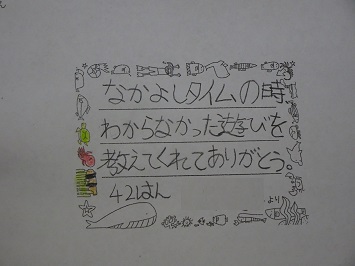 なかよしタイムの時
わからなかった遊びを
教えてくれてありがとう。
42はん
より